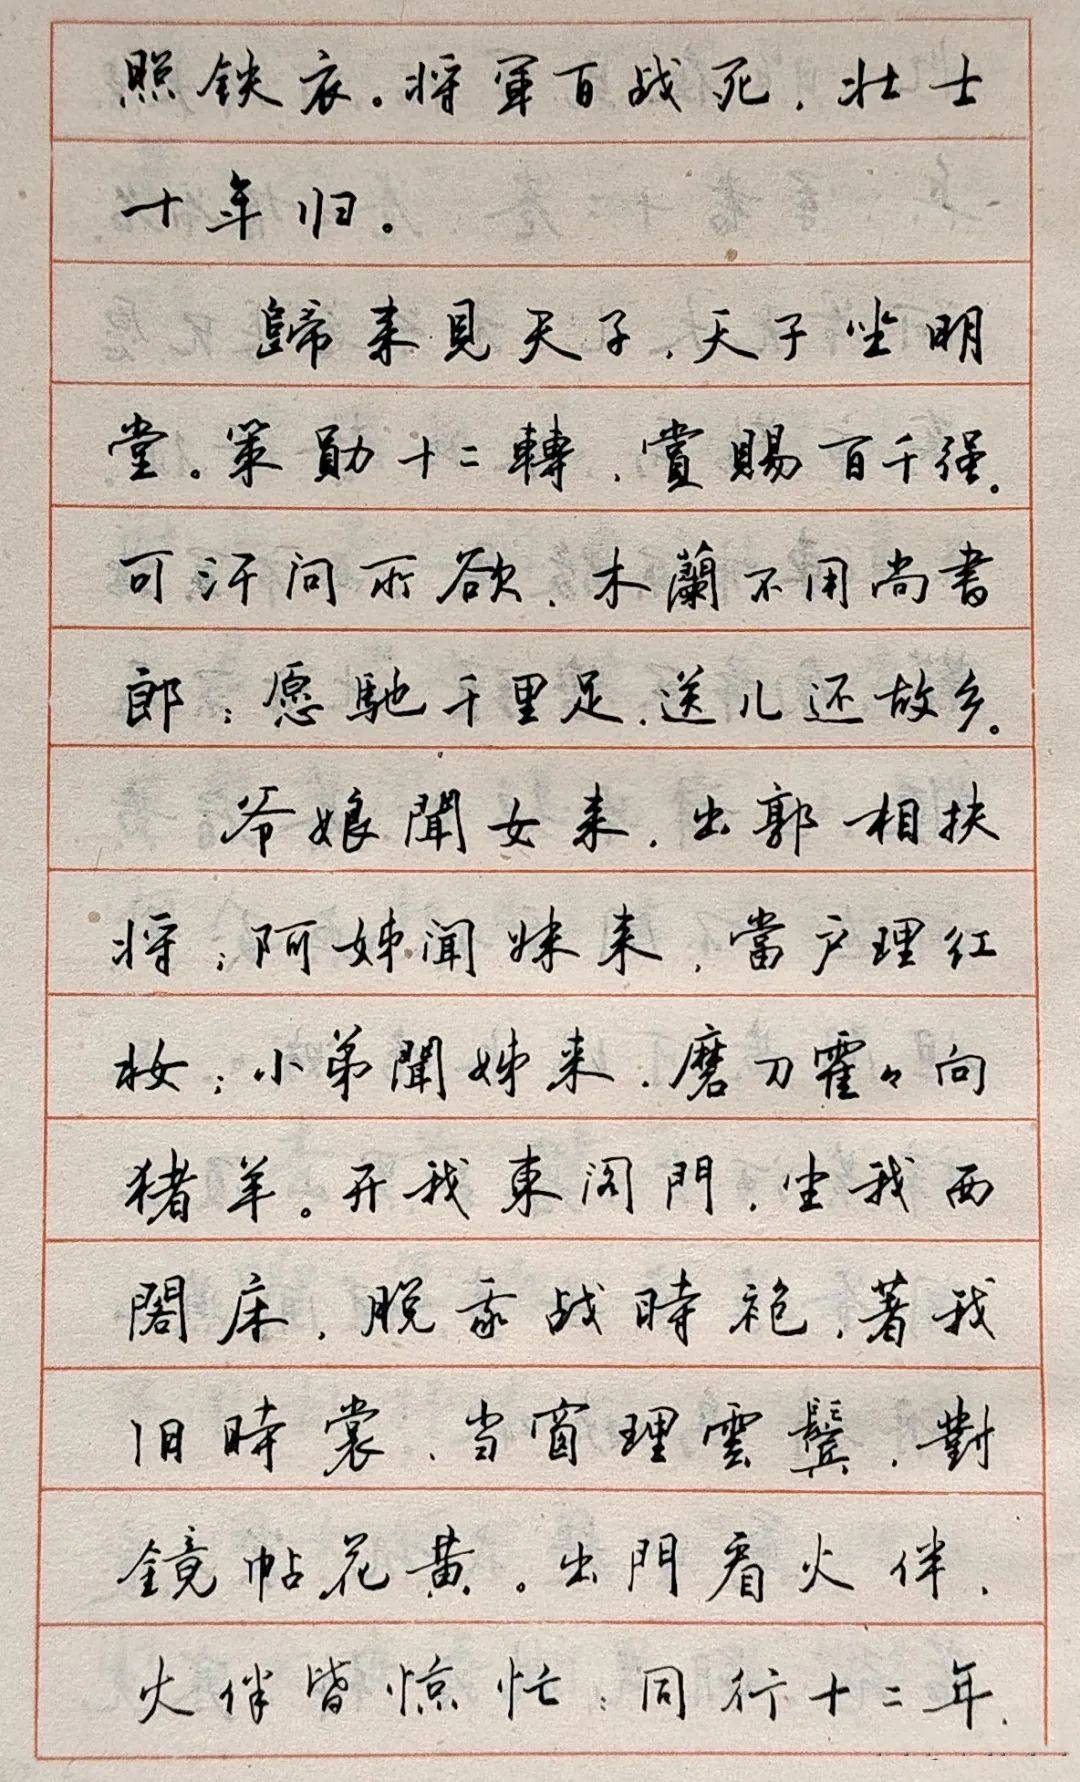 照铁衣。将軍百战死，壮士
十年归。
歸来見天子，天子坐明
堂。策勛十二轉，賞賜百千强。
可汗问所欲，木蘭不用尚書
郎；愿馳千里足，送儿还故乡。
爷娘聞女来，出郭相扶
将；阿姊闻妹来，當户理红
妆；小弟聞姊来，磨刀霍々向
猪羊。开我東阁門，坐我西
閣床，脱我战時袍，著我
旧時裳，当窗理雲鬓，對
鏡帖花黄。出門看火伴，
火伴皆惊忙：同行十二年，